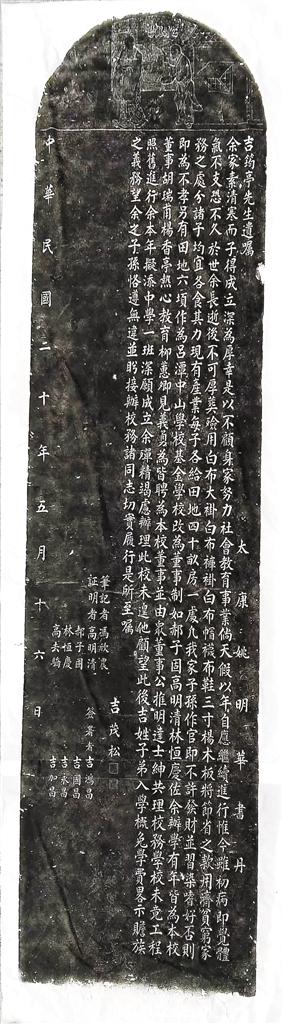 吉鈞亭先生遺囑
太康姚明華書丹
余家素清寒而子得成立深為厚幸是以不顧身家努力社會教育事業倘天假以年自應繼續進行惟今雖初病即覺體
氣不支恐不久於世余長逝後不可厚葬殮用白布大褂白布褲褂白布帽襪布鞋三寸楊木板將節省之款用濟貧窮家
務之處分諸子均宜各食其力現有產業每子各給田地四十畝房一處凡我家子孫作官即不許發財並習染嗜好否則
即為不孝另有田地六頃作為呂潭中山學校基金學校改為董事制如郝子固高明清林恒慶佐余辦學有年皆為本校
董事胡瑞甫楊香亭熱心教育柳蕙即見義勇為皆聘為本校董事並由眾董事公推明達士紳共理校務學校未竟工程
照舊進行余本年擬添中學一班深願成立余殫精竭慮辦理此校未遑他顧望此後吉姓子弟入學概免學費畧示贍族
之義務望余之子孫恪遵無違並盼接辦校務諸同志切實履行是所至囑
吉茂松
筆記者馮敬農
證明者高明清
郝子固
林恒慶
高去驕
簽署者吉鴻昌
吉國昌
吉永昌
吉加昌
中華民國二十年五月十六日